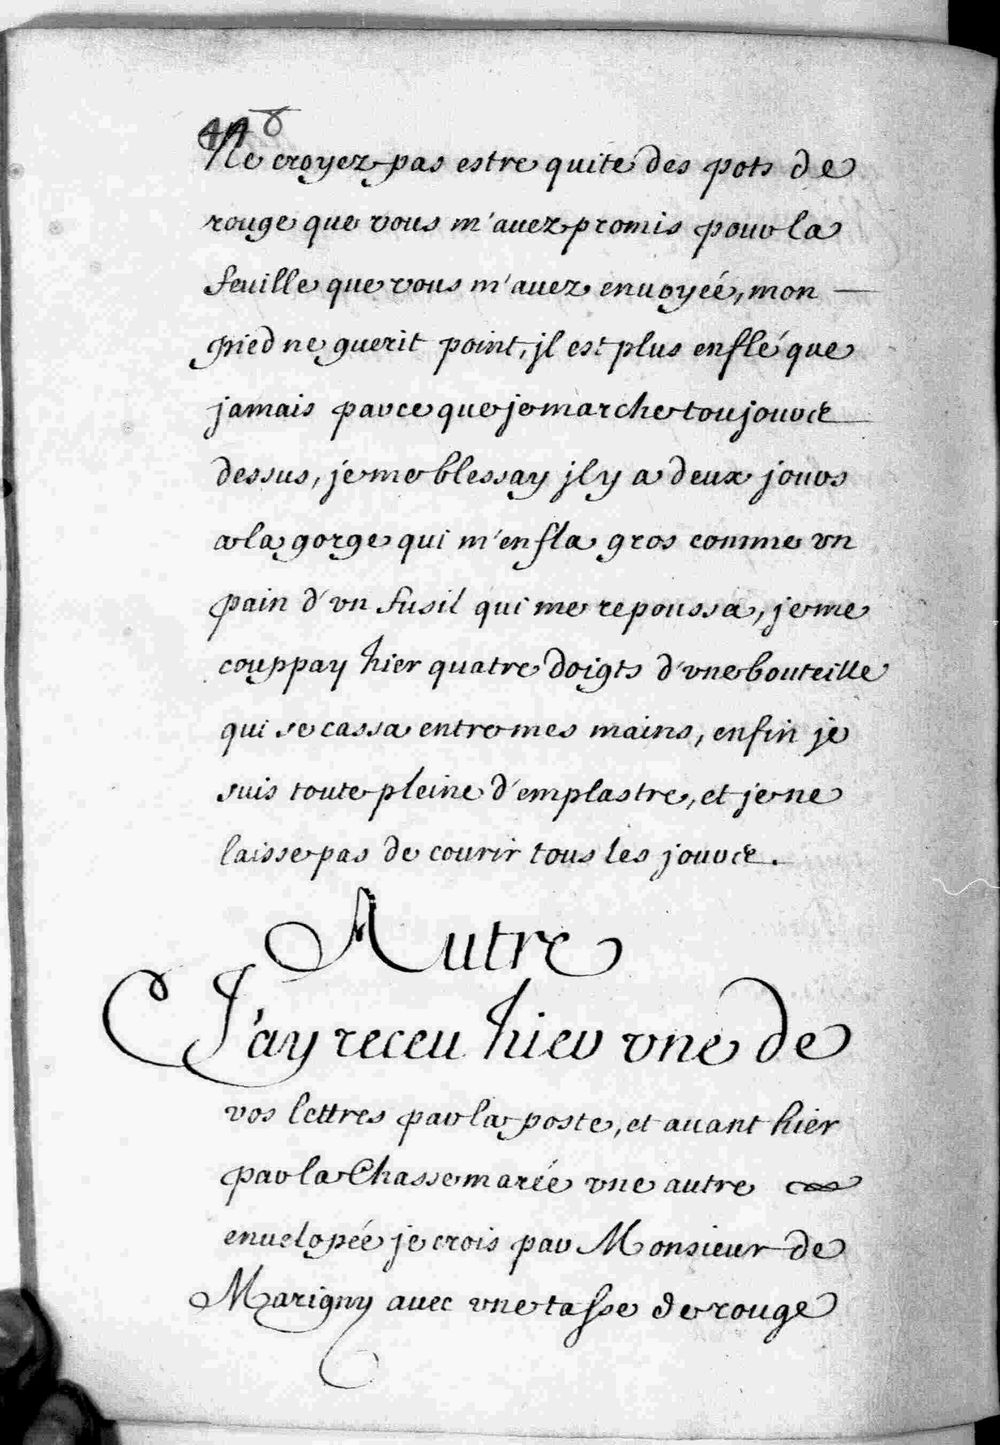 Ne croyez pas estre quite des pots de
rouge que vous m'auez promis pour la
feuille que vous m'auez enuoyée, mon
pied ne guerit point, jl est plus enflé que
jamais parce que je marche toujours
dessus, je me blessay jl y a deux jours
a la gorge qui m'enfla gros comme vn
pain d'vn fusil qui me repoussa, je me
couppay hier quatre doigts d'vne bouteille
qui se cassa entre mes mains, enfin je
suis toute pleine d'emplastre, et je ne
laisse pas de courir tous les jours.
Autre
J'ay receu hier vne de
vos lettres par la poste, et auant hier
par la Chasse marée vne autre
enuelopée je crois par Monsieur de
Marigny auec vne tasse de rouge